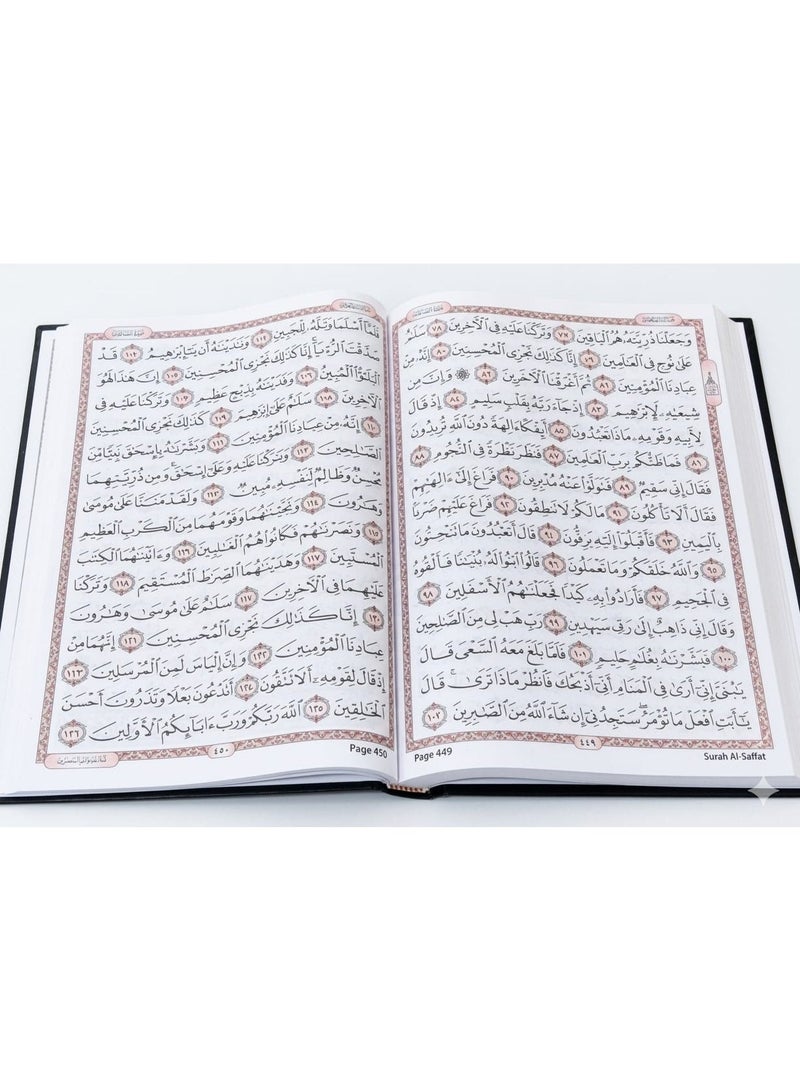 وَجَعَلْنَا ذُرِّيَّتَهُ هُمُ الْبَاقِينَ ٧٧ وَتَرَكْنَا عَلَيْهِ فِي الْآخِرِينَ ٧٨ سَلَٰمٌ
عَلَىٰ نُوحٍ فِي الْعَالَمِينَ ٧٩ إِنَّا كَذَٰلِكَ نَجْزِي الْمُحْسِنِينَ ٨٠ إِنَّهُ مِنْ
عِبَادِنَا الْمُؤْمِنِينَ ٨١ ثُمَّ أَغْرَقْنَا الْآخَرِينَ ۞ وَإِنَّ مِن
شِيعَتِهِ لَإِبْرَٰهِيمَ ٨٣ إِذْ جَاءَ رَبَّهُ بِقَلْبٍ سَلِيمٍ ٨٤ إِذْ قَالَ
لِأَبِيهِ وَقَوْمِهِ مَاذَا تَعْبُدُونَ ٨٥ أَئِفْكًا ءَالِهَةً دُونَ اللَّهِ تُرِيدُونَ
٨٦ فَمَا ظَنُّكُم بِرَبِّ الْعَالَمِينَ ٨٧ فَنَظَرَ نَظْرَةً فِي النُّجُومِ ٨٨
فَقَالَ إِنِّي سَقِيمٌ ٨٩ فَتَوَلَّوْا عَنْهُ مُدْبِرِينَ ٩٠ فَرَاغَ إِلَىٰ ءَالِهَتِهِمْ
فَقَالَ أَلَا تَأْكُلُونَ ٩١ مَا لَكُمْ لَا تَنطِقُونَ ٩٢ فَرَاغَ عَلَيْهِمْ ضَرْبًا
بِالْيَمِينِ ٩٣ فَأَقْبَلُوا إِلَيْهِ يَزِفُّونَ ٩٤ قَالَ أَتَعْبُدُونَ مَا تَنْحِتُونَ
٩٥ وَاللَّهُ خَلَقَكُمْ وَمَا تَعْمَلُونَ ٩٦ قَالُوا ابْنُوا لَهُ بُنْيَٰنًا فَأَلْقُوهُ
فِي الْجَحِيمِ ٩٧ فَأَرَادُوا بِهِ كَيْدًا فَجَعَلْنَٰهُمُ الْأَسْفَلِينَ ٩٨
وَقَالَ إِنِّي ذَاهِبٌ إِلَىٰ رَبِّي سَيَهْدِينِ ٩٩ رَبِّ هَبْ لِي مِنَ الصَّالِحِينَ
١٠٠ فَبَشَّرْنَٰهُ بِغُلَٰمٍ حَلِيمٍ ١٠١ فَلَمَّا بَلَغَ مَعَهُ السَّعْيَ قَالَ
يَٰبُنَيَّ إِنِّي أَرَىٰ فِي الْمَنَامِ أَنِّي أَذْبَحُكَ فَانظُرْ مَاذَا تَرَىٰ قَالَ
يَٰأَبَتِ افْعَلْ مَا تُؤْمَرُ سَتَجِدُنِي إِن شَاءَ اللَّهُ مِنَ الصَّٰبِرِينَ ١٠٢
٤٤٩
Page 449
Surah Al-Saffat
فَلَمَّا أَسْلَمَا وَتَلَّهُ لِلْجَبِينِ وَنَٰدَيْنَٰهُ أَن يَٰإِبْرَٰهِيمُ قَدْ
صَدَّقْتَ الرُّءْيَا إِنَّا كَذَٰلِكَ نَجْزِي الْمُحْسِنِينَ ١٠٥ إِنَّ هَٰذَا لَهُوَ
الْبَلَٰٓؤُا الْمُبِينُ ١٠٦ وَفَدَيْنَٰهُ بِذِبْحٍ عَظِيمٍ وَتَرَكْنَا عَلَيْهِ فِي
الْآخِرِينَ سَلَٰمٌ عَلَىٰ إِبْرَٰهِيمَ ١٠٩ كَذَٰلِكَ نَجْزِي الْمُحْسِنِينَ
إِنَّهُ مِنْ عِبَادِنَا الْمُؤْمِنِينَ ١١١ وَبَشَّرْنَٰهُ بِإِسْحَٰقَ نَبِيًّا مِّنَ
الصَّٰلِحِينَ وَبَٰرَكْنَا عَلَيْهِ وَعَلَىٰ إِسْحَٰقَ وَمِن ذُرِّيَّتِهِمَا
مُحْسِنٌ وَظَالِمٌ لِّنَفْسِهِ مُبِينٌ ١١٣ وَلَقَدْ مَنَنَّا عَلَىٰ مُوسَىٰ
وَهَٰرُونَ ١١٤ وَنَجَّيْنَٰهُمَا وَقَوْمَهُمَا مِنَ الْكَرْبِ الْعَظِيمِ
١١٥ وَنَصَرْنَٰهُمْ فَكَانُوا هُمُ الْغَٰلِبِينَ ١١٦ وَءَاتَيْنَٰهُمَا الْكِتَٰبَ
الْمُسْتَبِينَ ١١٧ وَهَدَيْنَٰهُمَا الصِّرَٰطَ الْمُسْتَقِيمَ ١١٨ وَتَرَكْنَا
عَلَيْهِمَا فِي الْآخِرِينَ سَلَٰمٌ عَلَىٰ مُوسَىٰ وَهَٰرُونَ
إِنَّا كَذَٰلِكَ نَجْزِي الْمُحْسِنِينَ ١٢١ إِنَّهُمَا مِنْ
عِبَادِنَا الْمُؤْمِنِينَ ١٢٢ وَإِنَّ إِلْيَاسَ لَمِنَ الْمُرْسَلِينَ
إِذْ قَالَ لِقَوْمِهِ أَلَا تَتَّقُونَ ١٢٤ أَتَدْعُونَ بَعْلًا وَتَذَرُونَ أَحْسَنَ
الْخَٰلِقِينَ ١٢٥ اللَّهَ رَبَّكُمْ وَرَبَّ ءَابَائِكُمُ الْأَوَّلِينَ ١٢٦
٤٥٠
Page 450